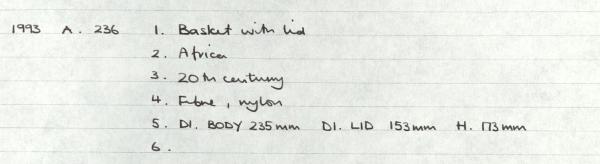 1993 A. 236 1. Basket with lid
2. Africa
3. 20th century
4. Fibre, nylon
5. DI. BODY 235mm DI. LID 153mm H. 173mm
6.